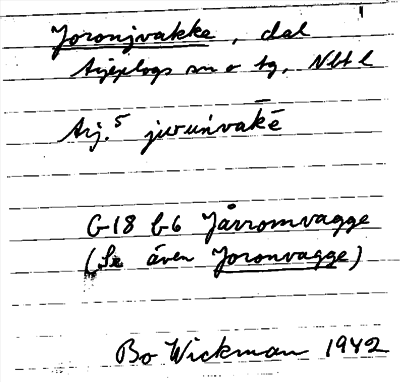 Joronjvakke, dal
Arjeplogs sn o tg, Nbt l
Arj.⁵ juruńvaḱē
G-18 b6 Jårromvagge
(Se även Joronvagge)
Bo Wickman 1942